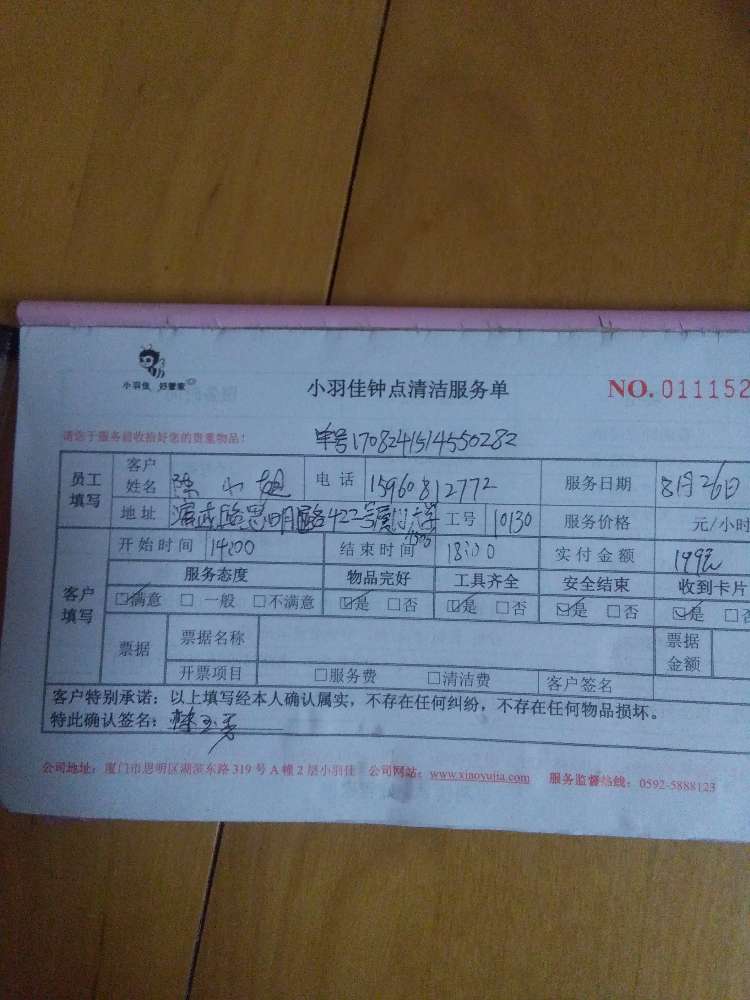 小羽佳 好管家
小羽佳钟点清洁服务单
NO. 0111152
请您于服务前收拾好您的贵重物品!
单号1708241514550282
员工填写 客户姓名 陈小姐 电话 15960812772 服务日期 8月26日
地址 思明南路422号厦门大学 工号 10130 服务价格 元/小时
客户填写 开始时间 14:00 结束时间 18:00 实付金额 199元
服务态度 物品完好 工具齐全 安全结束 收到卡片
☑满意 □一般 □不满意 ☑是 □否 ☑是 □否 ☑是 □否 ☑是 □否
票据 票据名称 票据金额
开票项目 □服务费 □清洁费 客户签名
客户特别承诺:以上填写经本人确认属实,不存在任何纠纷,不存在任何物品损坏。
特此确认签名:
公司地址:厦门市思明区湖滨东路 319 号 A 幢 2 层小羽佳 公司网站:www.xiaoyujia.com 服务监督热线:0592-5888123